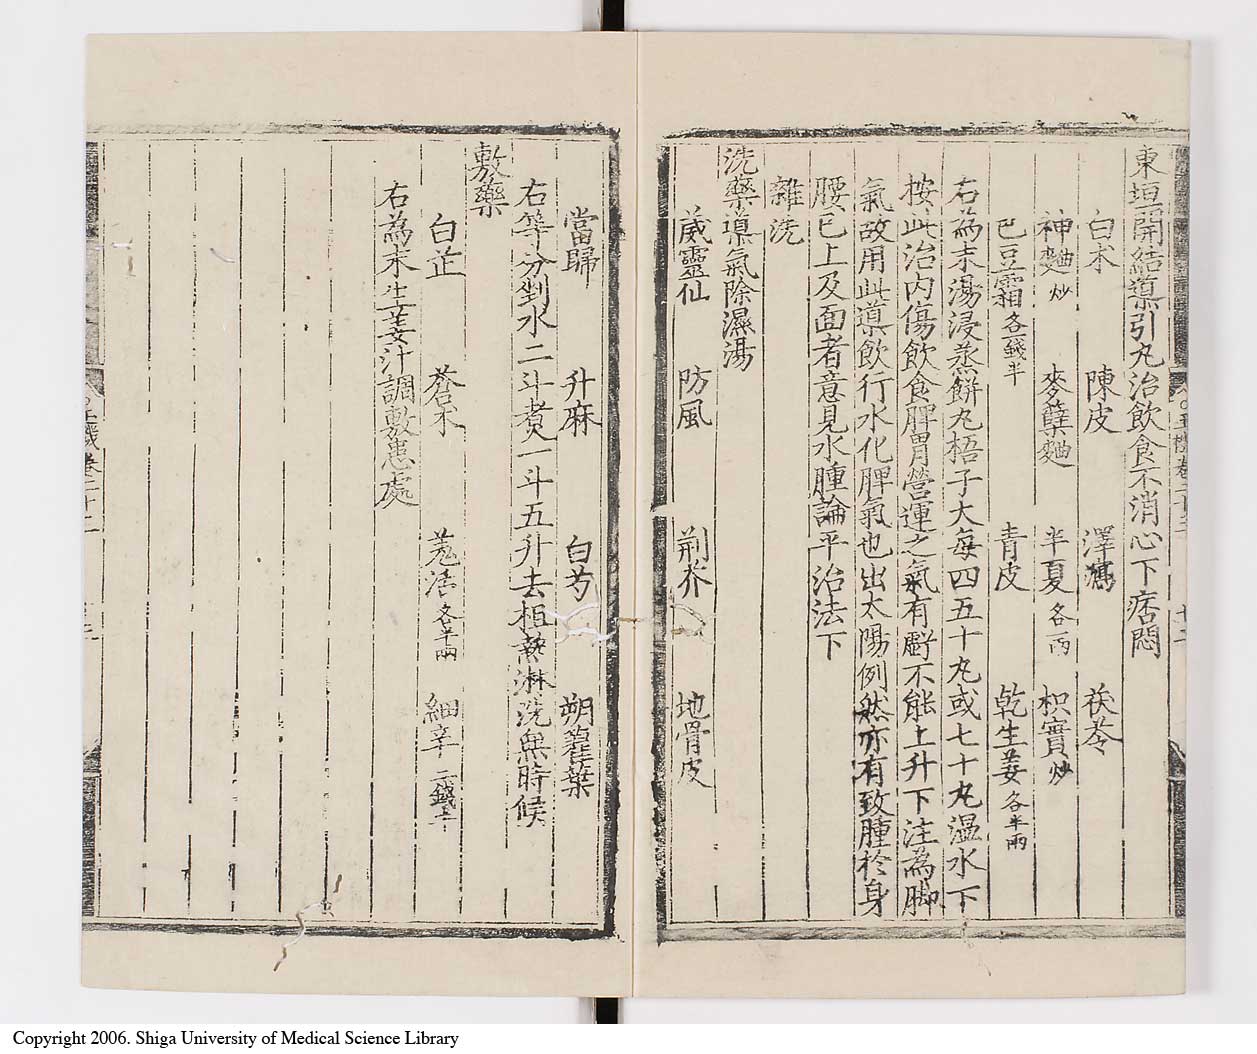 東垣開結導引丸治飲食不消心下痞悶
白朮 陳皮 澤瀉 茯苓
神麯炒 麥糵麯 半夏各一两 枳實炒
巴豆霜各一錢半 青皮 乾生姜各半兩
右為末湯浸蒸餅丸梧子大每四五十丸或七十丸溫水下
按此治内傷飲食脾胃營運之氣有虧不能上升下注為脚
氣故用此導飲行水化脾氣也出太陽例然亦有致腫於身
腰已上及面者意見水腫論平治法下
雜洗
洗藥導氣除濕湯
葳靈仙 防風 荆芥 地骨皮
當歸 升麻 白芍 朔藋葉
右等分剉水二斗煑一斗五升去柤熱淋洗無時候
敷藥
白芷 蒼朮 羗活各半兩 細辛二錢半
右為末生姜汁調敷患處
Copyright 2006. Shiga University of Medical Science Library